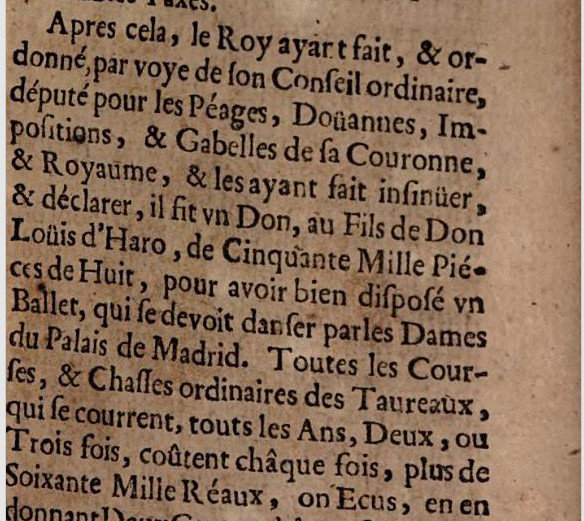 Taxes.
Apres cela, le Roy ayant fait, & or-
donné, par voye de ſon Conſeil ordinaire,
député pour les Péages, Doüannes, Im-
poſitions, & Gabelles de ſa Couronne,
& Royaume, & les ayant fait inſinüer,
& déclarer, il fit vn Don, au Fils de Don
Loüis d'Haro, de Cinquante Mille Pié-
ces de Huit, pour avoir bien diſpoſé vn
Ballet, qui ſe devoit danſer par les Dames
du Palais de Madrid. Toutes les Cour-
ſes, & Chaſſes ordinaires des Taureaux,
qui ſe courrent, touts les Ans, Deux, ou
Trois fois, coûtent châque fois, plus de
Soixante Mille Réaux, on Ecus, en en
donnant